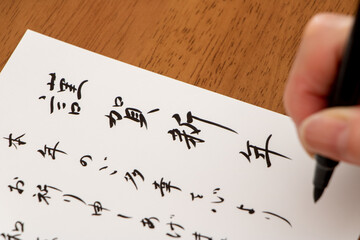 謹賀新年
本年のご多幸を心より
お祈り申しあげ